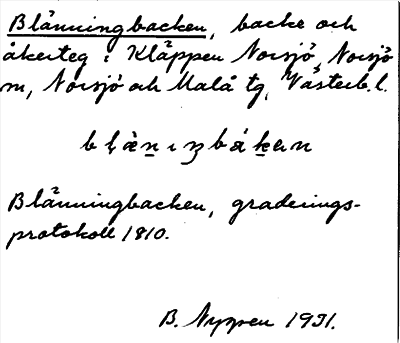 Blänningbacken, backe och
åkerteg i Kläppen Norsjö, Norsjö
sn, Norsjö och Malå tg, Västerb. l.
Blänningbacken, graderings-
protokoll 1810.
B. Nyzen 1931.